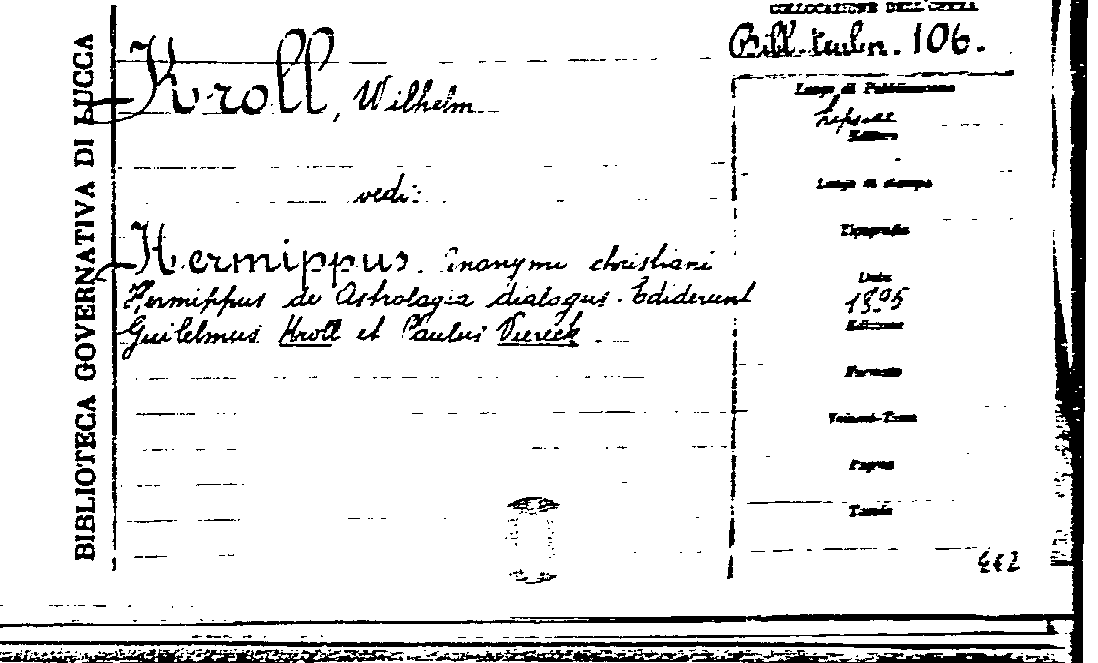 BIBLIOTECA GOVERNATIVA DI LUCCA
COLLOCAZIONE DELL'OPERA
Bibl. teubn. 106.
Kroll, Wilhelm
vedi:
Hermippus. Anonymi christiani
Hermippus de Astrologia dialogus. Ediderunt
Guilelmus Kroll et Paulus Viereck
Luogo di Pubblicazione
Lipsiae
Editore
Luogo di stampa
Tipografia
Data
1895
Edizione
Formato
Volumi-Tomi
Pagine
Tavole